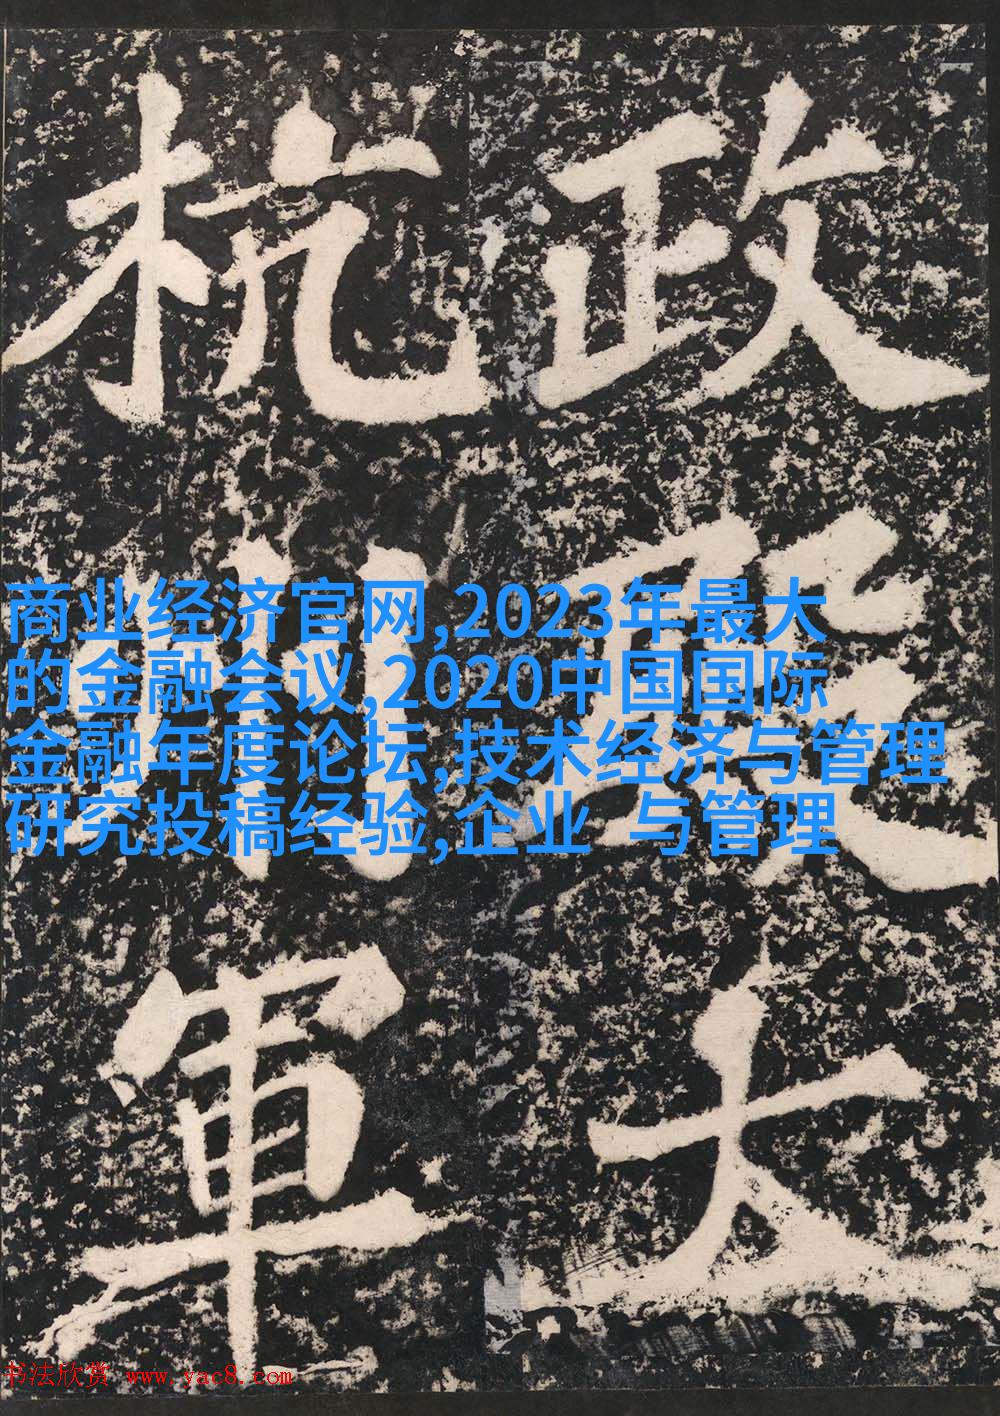 政殿大
杭州軍
商业经济官网,2023年最大
的金融会议,2020中国国际
金融年度论坛,技术经济与管理
研究投稿经验,企业 与管理
书法欣赏 www.yac8.com